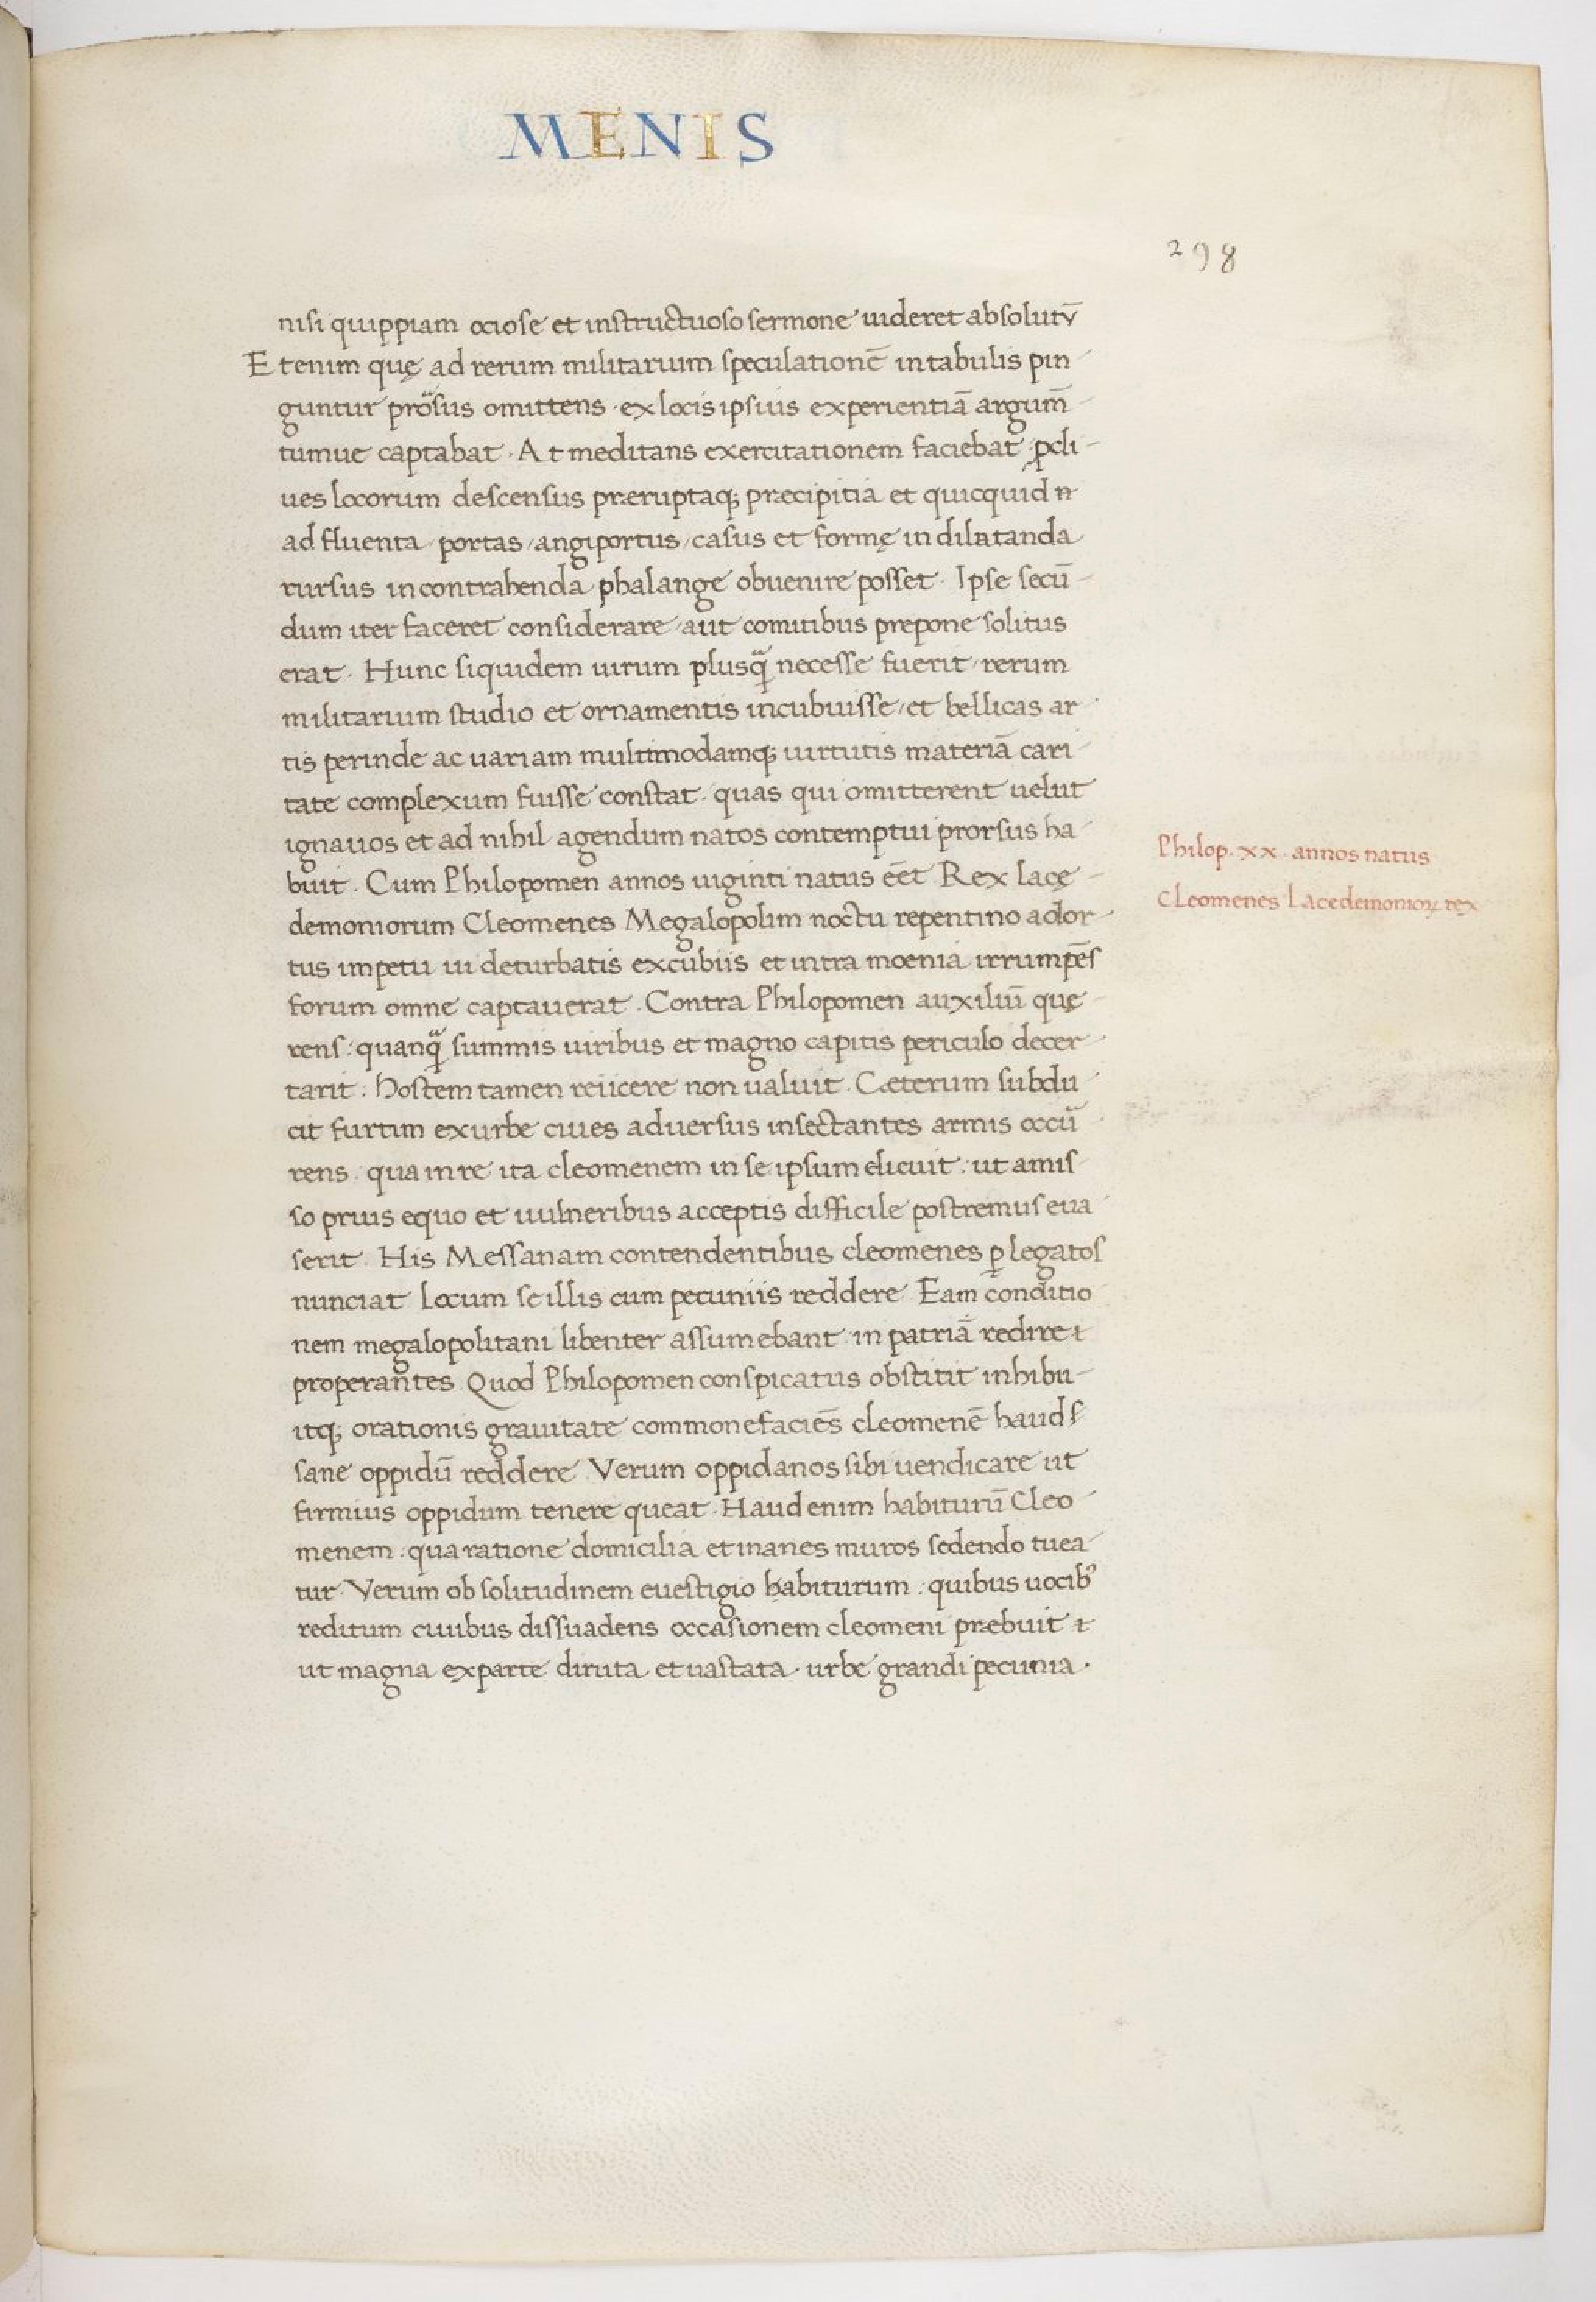 MENIS
298
nisi quippiam ociose et instructuoso sermone uideret absolutū
Etenim quę ad rerum militarium speculationē in tabulis pin
guntur prosus omittens · ex locis ipsius experientiā argum̄
tumue captabat · At meditans exercitationem faciebat · ꝓcli-
ues locorum descensus præruptaq; præcipitia et quicquid n
ad fluenta / portas / angiportus / casus et formę in dilatanda
rursus in contrahenda phalange obuenire posset · Ipse secū-
dum iter faceret considerare / aut comitibus prepone solitus
erat · Hunc siquidem uirum plusq̃ necesse fuerit / rerum
militarium studio et ornamentis incubuisse / et bellicas ar
tis perinde ac uariam multimodamq; uirtutis materiā cari
tate complexum fuisse constat · quas qui omitterent uelut
ignauos et ad nihil agendum natos contemptui prorsus ha
buit · Cum Philopomen annos uiginti natus eēt Rex lacę-
demoniorum Cleomenes Megalopolim noctu repentino ador-
tus impetu ui deturbatis excubiis et intra moenia irrumpēs
forum omne captauerat · Contra Philopomen auxiliū quę
rens : quanq̃ summis uiribus et magno capitis periculo decer-
tarit : hostem tamen reiicere non ualuit · Cæterum subdu
cit furtim ex urbe ciues aduersus insectantes armis occū
rens · qua in re ita cleomenem in se ipsum elicuit : ut amis
so prius equo et uulneribus acceptis difficile postremus eua
serit · His Messanam contendentibus cleomenes ꝑ legatos
nunciat Locum se illis cum pecuniis reddere Eam conditio
nem megalopolitani libenter assumebant · in patriā redire ı
properantes Quod Philopomen conspicatus obstitit inhibu-
itq; orationis grauitate commonefaciēs cleomenē haud s
sane oppidū reddere Verum oppidanos sibi uendicare ut
firmius oppidum tenere queat · Haud enim habiturū Cleo
menem : qua ratione domicilia et inanes muros sedendo tuea
tur · Verum ob solitudinem euestigio habiturum : quibus uocib᾽
reditum ciuibus dissuadens occasionem cleomeni præbuit ı
ut magna ex parte diruta et uastata · urbe grandi pecunia ·
Philop. xx. annos natus
Cleomenes Lacedemonioꝝ rex